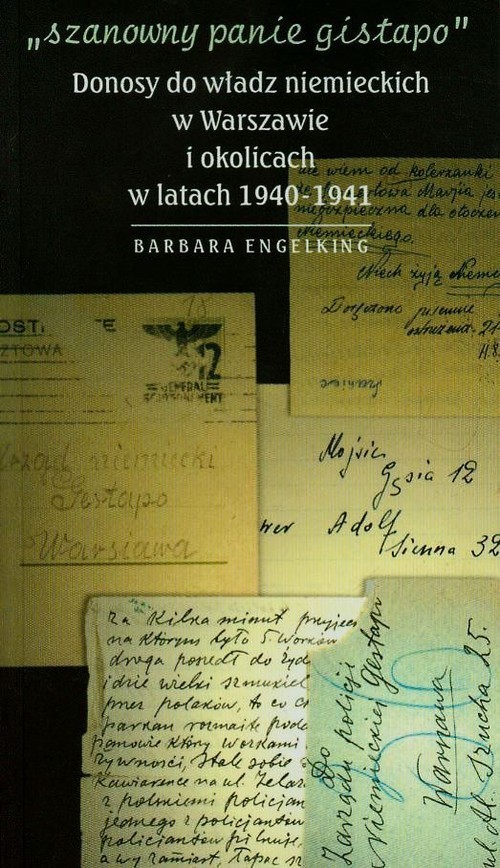 „szanowny panie gistapo”
Donosy do władz niemieckich
w Warszawie
i okolicach
w latach 1940-1941
BARBARA ENGELKING
nie wiem od koleżanki
Marja
niebezpieczna dla otocze
niemieckiego.
Niech żyją Niemc
Doręczono pisemne
18
OST
E
ZTOWA
12
GENERAL
GOUVERNEMENT
Urząd niemiecki
Gestapo
Warsiawa
Mojsie
Gęsia 12
wer Adolf
Sienna 32
za Kilka minut przyjec
na którym było 5. Workow
droga poszedł do żyd
idzie wielki szmukiel
przez polaków, to co
parkan rozmaite
panowie który workami
żywności, stale sobie
Kawiarence na ul. Żelaz
z polskiemi policjan
jednego z policjantów
policjantów pilnuje,
a wy zamiast, łapac
Do
Zarządu policji
Niemieckiej Gestapo
Warszawa
Al. Szucha 25.